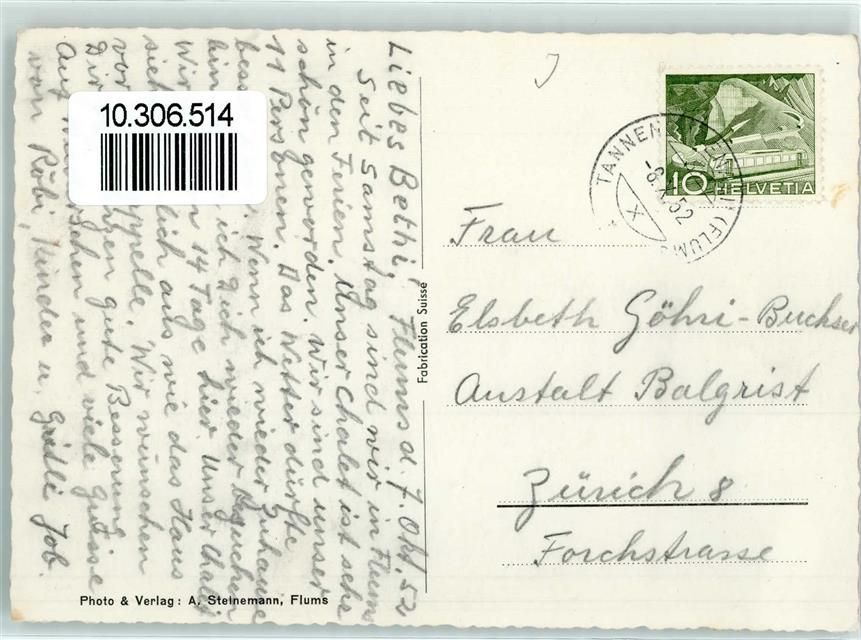 Liebes Bethi, Flums d. 7. Okt. 52
Seit Samstag sind wir in Flums
in den Ferien. Unser Chalet ist sehr
schön geworden. Wir sind unser
11 Personen. Das Wetter dürfte
bess Wenn ich wieder Zuhause
bin ich Dich wieder besuchen
Wir 14 Tage hier. Unser Chalet
sieht lich aus wie das Haus
vor ppelle. Wir wünschen
Dir nen gute Besserung
Auf Wiedersehen und viele Grüsse
von Röbi, Kinder u. Gretli Job.
10.306.514
Photo & Verlag: A. Steinemann, Flums
Fabrication Suisse
10 HELVETIA
TANNEN (FLUMS)
-8.X.52
X
Frau
Elsbeth Göhri-Buchser
Anstalt Balgrist
Zürich 8
Forchstrasse